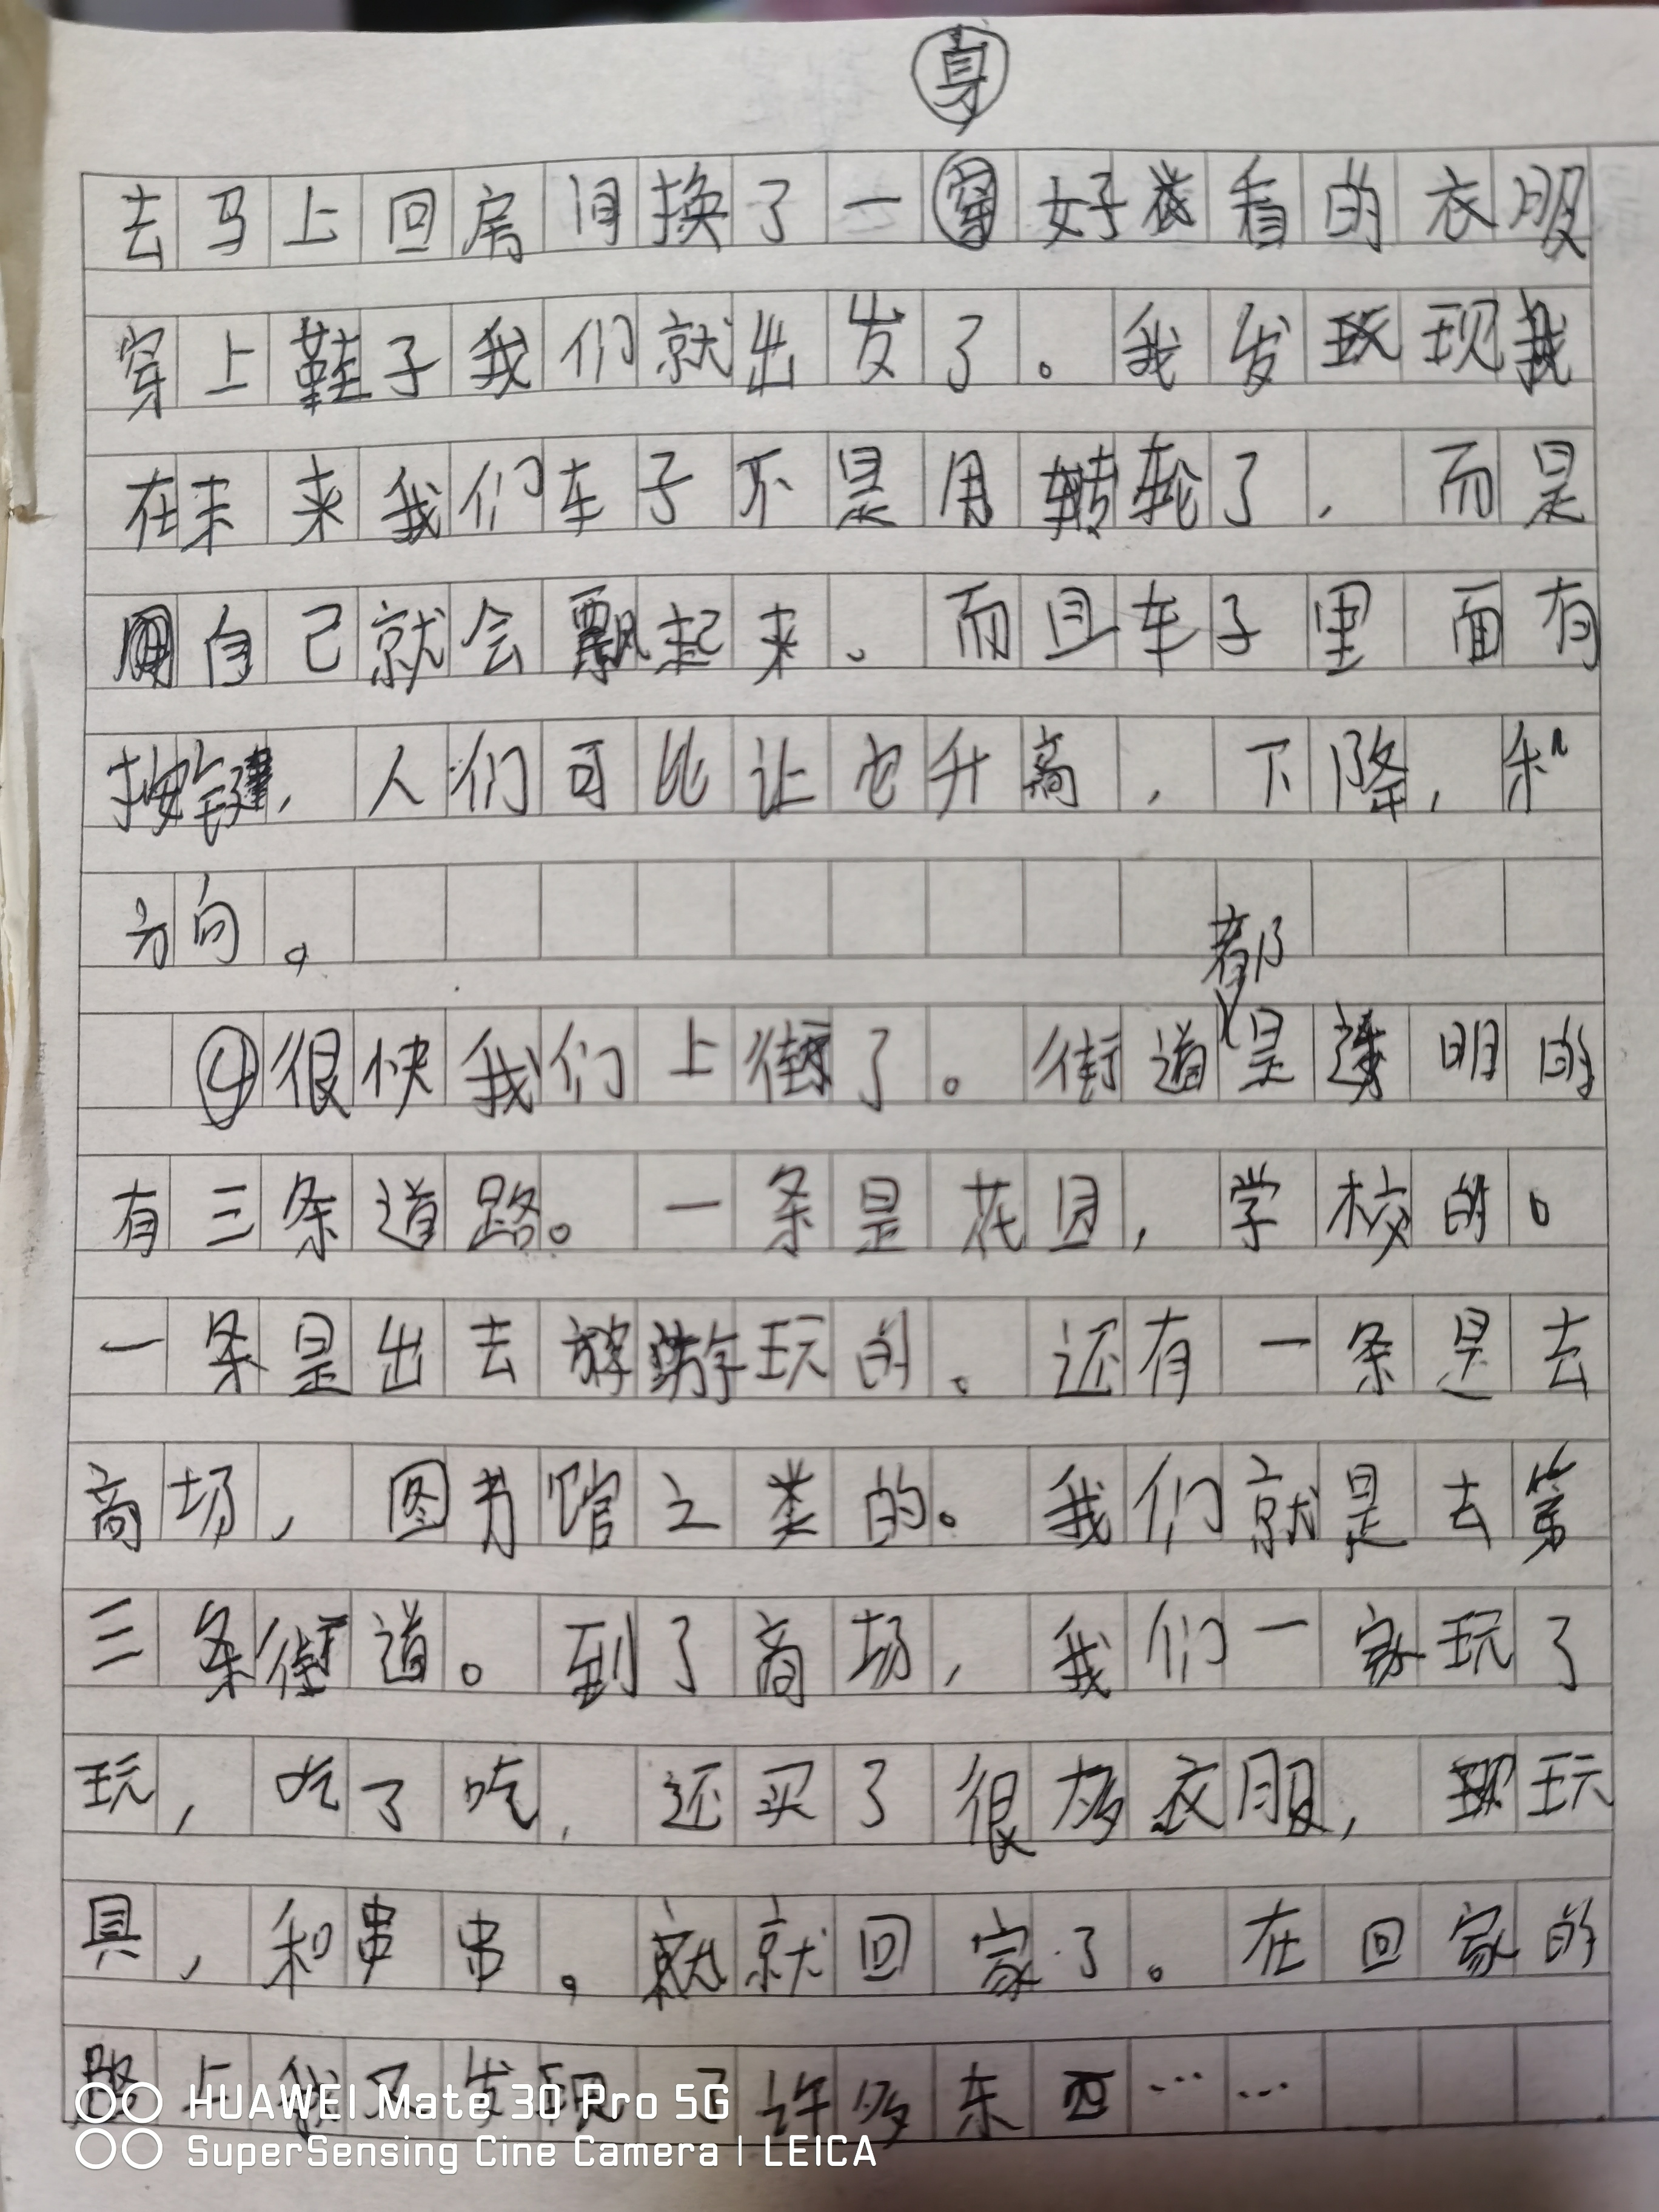 身
去马上回房间换了一穿好看的衣服
穿上鞋子我们就出发了。我发现我
在未来我们车子不是用转轮了，而是
自己就会飘起来。而且车子里面有
按键，人们可比让它升高，下降，和
方向。
都
④很快我们上街了。街道是透明的
有三条道路。一条是花园，学校的。
一条是出去游玩的。还有一条是去
商场，图书馆之类的。我们就是去第
三条街道。到了商场，我们一家玩了
玩，吃了吃，还买了很多衣服，玩
具，和串串。就回家了。在回家的
路上我又发现了许多东西……
HUAWEI Mate 30 Pro 5G
SuperSensing Cine Camera | LEICA